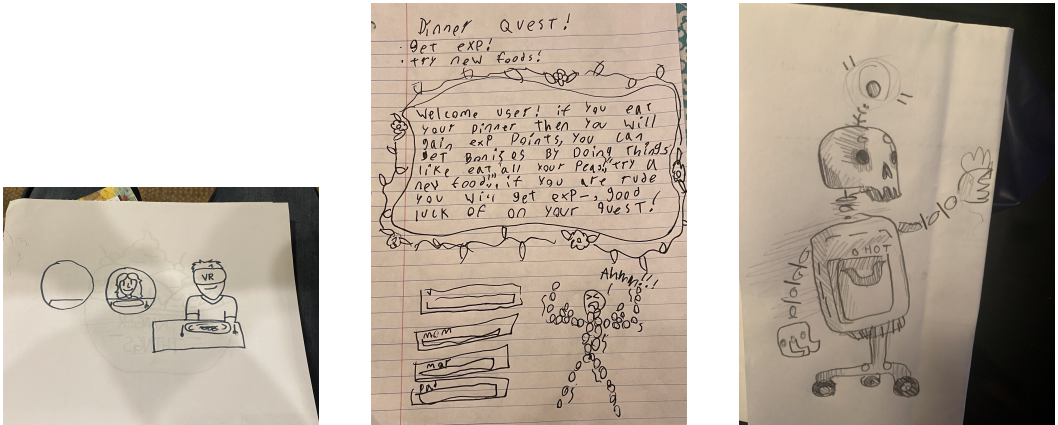 VR
Dinner QUEST!
· get exp!
· try new foods!
Welcome user! if you eat
your Dinner then you will
gain exp Points, you can
get Bonises By Doing things
like eat "all your Peas", "try a
new food", if you are rude
you will get exp-, good
luck of on your quest!
Ahhh!!!
mom
HOT